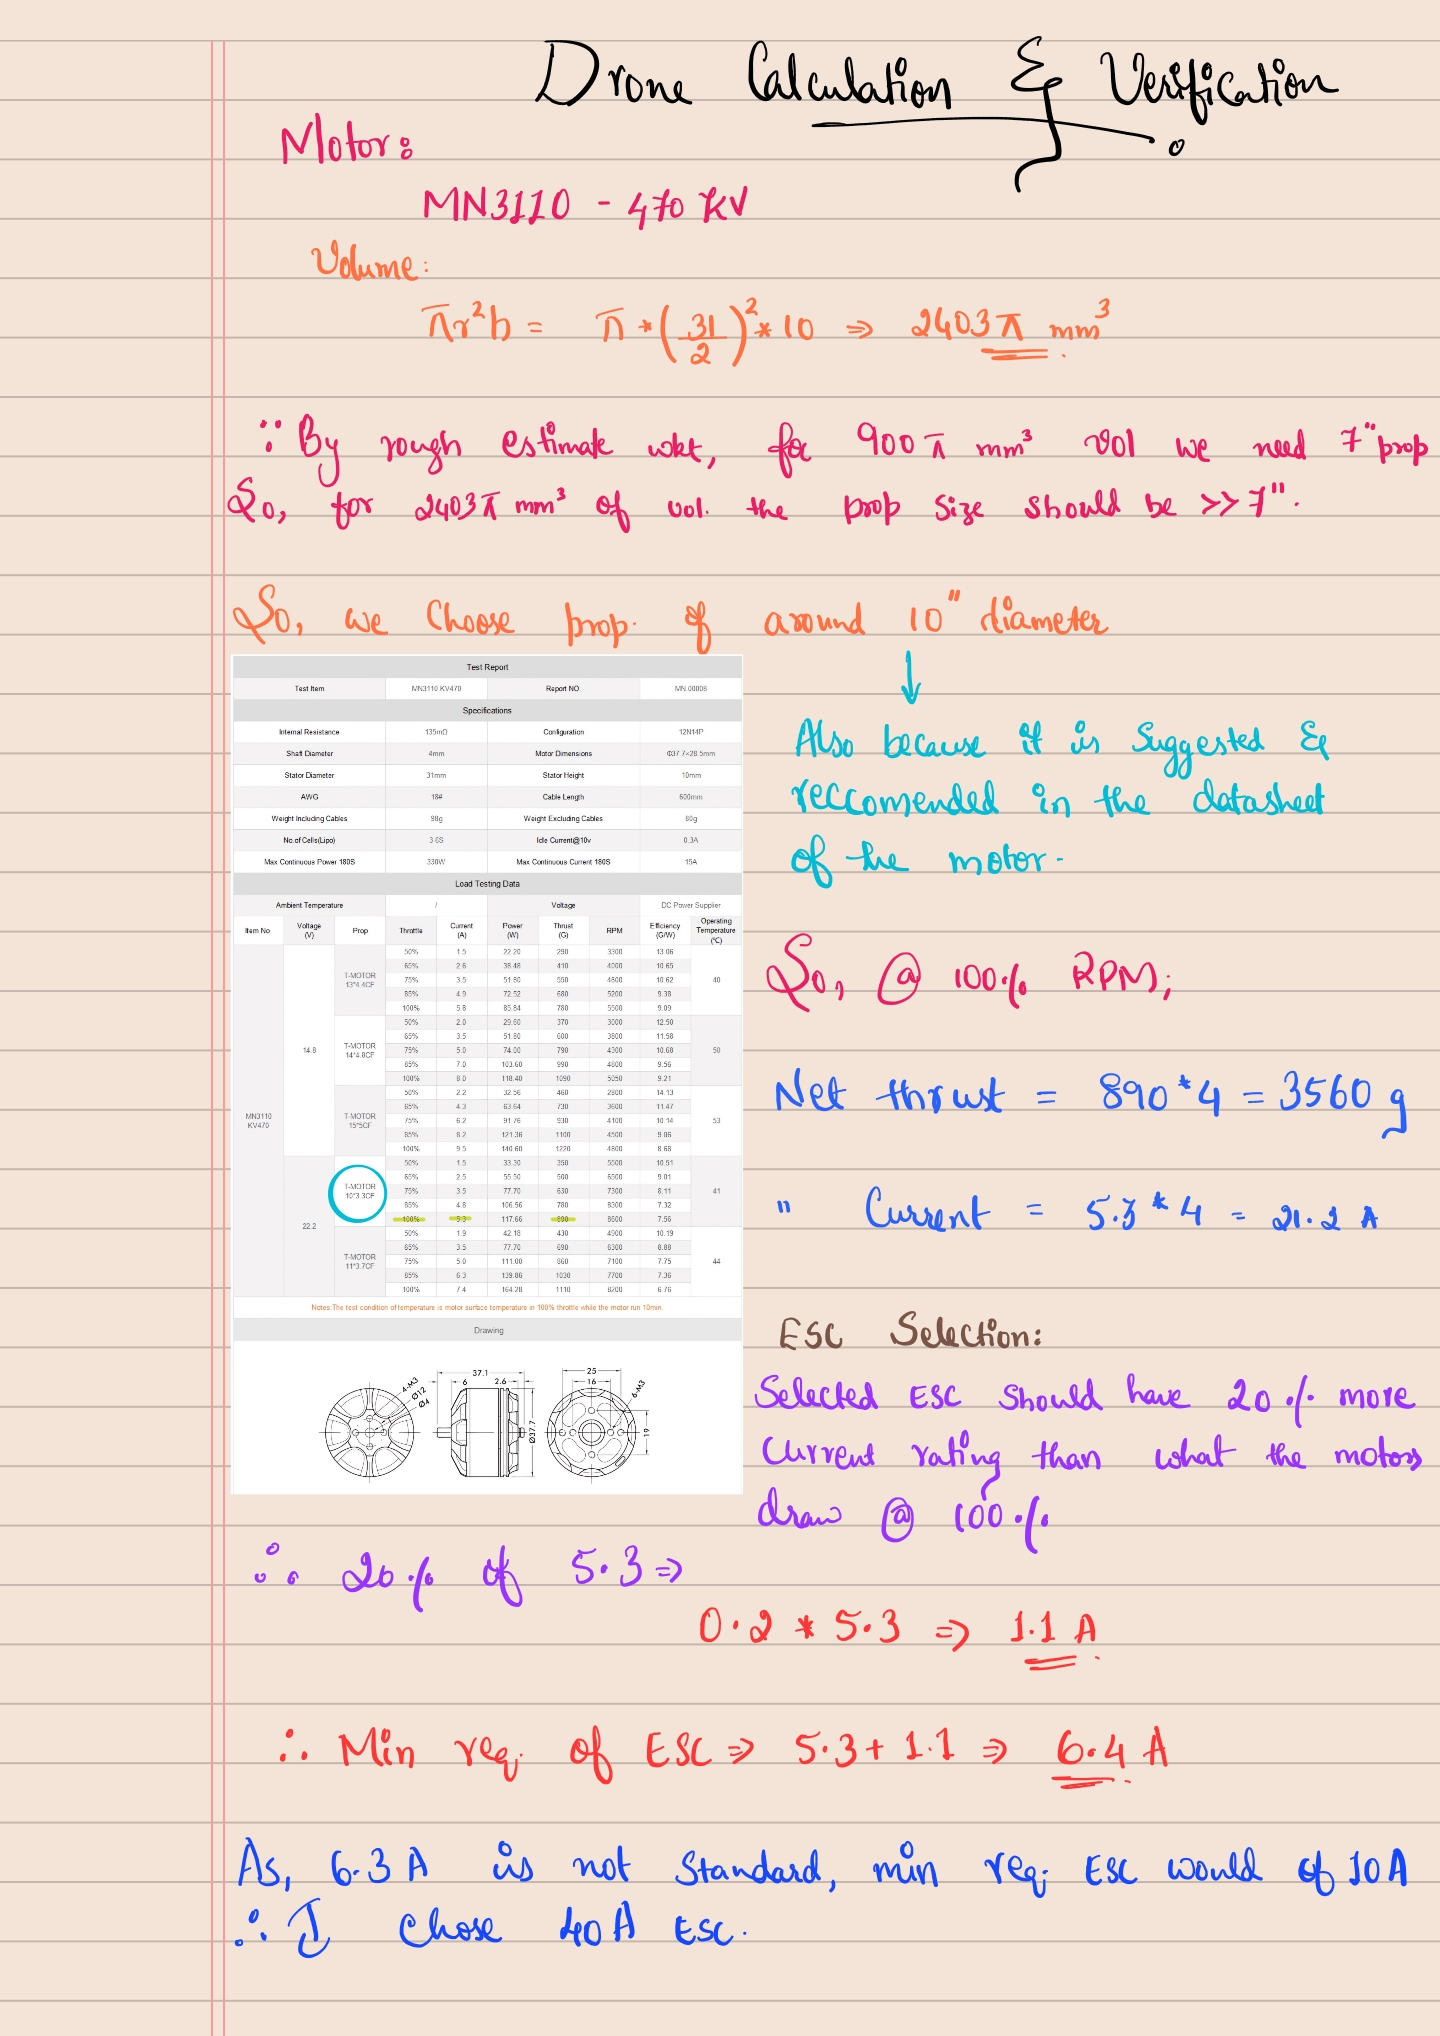 Drone Calculation & Verification
Motor:
MN3110 - 470 KV
Volume:
πr²h = π * (31/2)² * 10 ⇒ 2403π mm³
∵ By rough estimate wkt, for 900π mm³ vol we need 7" prop
So, for 2403π mm³ of vol. the prop size should be >> 7".
So, we choose prop. of around 10" diameter
↓
Also because it is suggested &
reccomended in the datasheet
of the motor.
Test Report
Test Item MN3110 KV470 Report NO. MN.00008
Specifications
Internal Resistance 135mΩ Configuration 12N14P
Shaft Diameter 4mm Motor Dimensions Φ37.7×28.5mm
Stator Diameter 31mm Stator Height 10mm
AWG 18# Cable Length 600mm
Weight Including Cables 98g Weight Excluding Cables 80g
No.of Cells(Lipo) 3-6S Idle Current@10v 0.3A
Max Continuous Power 180S 330W Max Continuous Current 180S 15A
Load Testing Data
Ambient Temperature / Voltage DC Power Supplier
Item No Voltage (V) Prop Throttle Current (A) Power (W) Thrust (G) RPM Efficiency (G/W) Operating Temperature (°C)
MN3110 KV470
14.8
T-MOTOR 13*4.4CF
50% 1.5 22.20 290 3300 13.06
65% 2.6 38.48 410 4000 10.65
75% 3.5 51.80 550 4800 10.62
85% 4.9 72.52 680 5200 9.38
100% 5.8 85.84 780 5500 9.09
40
T-MOTOR 14*4.8CF
50% 2.0 29.60 370 3000 12.50
65% 3.5 51.80 600 3800 11.58
75% 5.0 74.00 790 4300 10.68
85% 7.0 103.60 990 4800 9.56
100% 8.0 118.40 1090 5050 9.21
50
T-MOTOR 15*5CF
50% 2.2 32.56 460 2800 14.13
65% 4.3 63.64 730 3600 11.47
75% 6.2 91.76 930 4100 10.14
85% 8.2 121.36 1100 4500 9.06
100% 9.5 140.60 1220 4800 8.68
53
22.2
T-MOTOR 10*3.3CF
50% 1.5 33.30 350 5500 10.51
65% 2.5 55.50 500 6500 9.01
75% 3.5 77.70 630 7300 8.11
85% 4.8 106.56 780 8300 7.32
100% 5.3 117.66 890 8600 7.56
41
T-MOTOR 11*3.7CF
50% 1.9 42.18 430 4900 10.19
65% 3.5 77.70 690 6300 8.88
75% 5.0 111.00 860 7100 7.75
85% 6.3 139.86 1030 7700 7.36
100% 7.4 164.28 1110 8200 6.76
44
Notes:The test condition of temperature is motor surface temperature in 100% throttle while the motor run 10min.
Drawing
4-M3
Ø12
Ø4
37.1
6 2.6
Ø37.7
25
16
6-M3
19
So, @ 100% RPM;
Net thrust = 890 * 4 = 3560 g
" Current = 5.3 * 4 = 21.2 A
ESC Selection:
Selected ESC should have 20% more
current rating than what the motors
draw @ 100%
∴ 20% of 5.3 ⇒
0.2 * 5.3 ⇒ 1.1 A
∴ Min req. of ESC ⇒ 5.3 + 1.1 ⇒ 6.4 A
As, 6.3 A is not standard, min req. ESC would of 10A
∴ I chose 40A ESC.